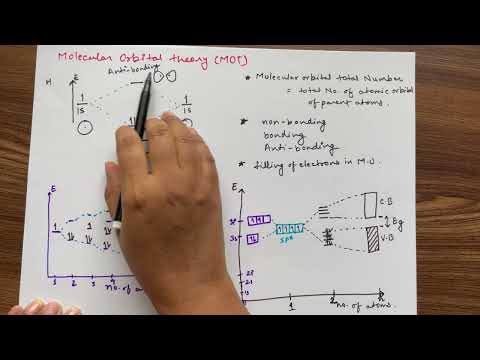 Molecular Orbital theory (MOT)
Anti-bonding
H
E
1
1s
1
1s
* Molecular orbital total Number
= total No. of atomic orbital
of parent atoms.
* non-bonding
bonding
Anti-bonding
* filling of electrons in M.O.
E
1 2 3 4
no. of
E
3p
3s
2p
2s
1s
sp3
C.B
Eg
V.B
1 2 n
no. of atoms.